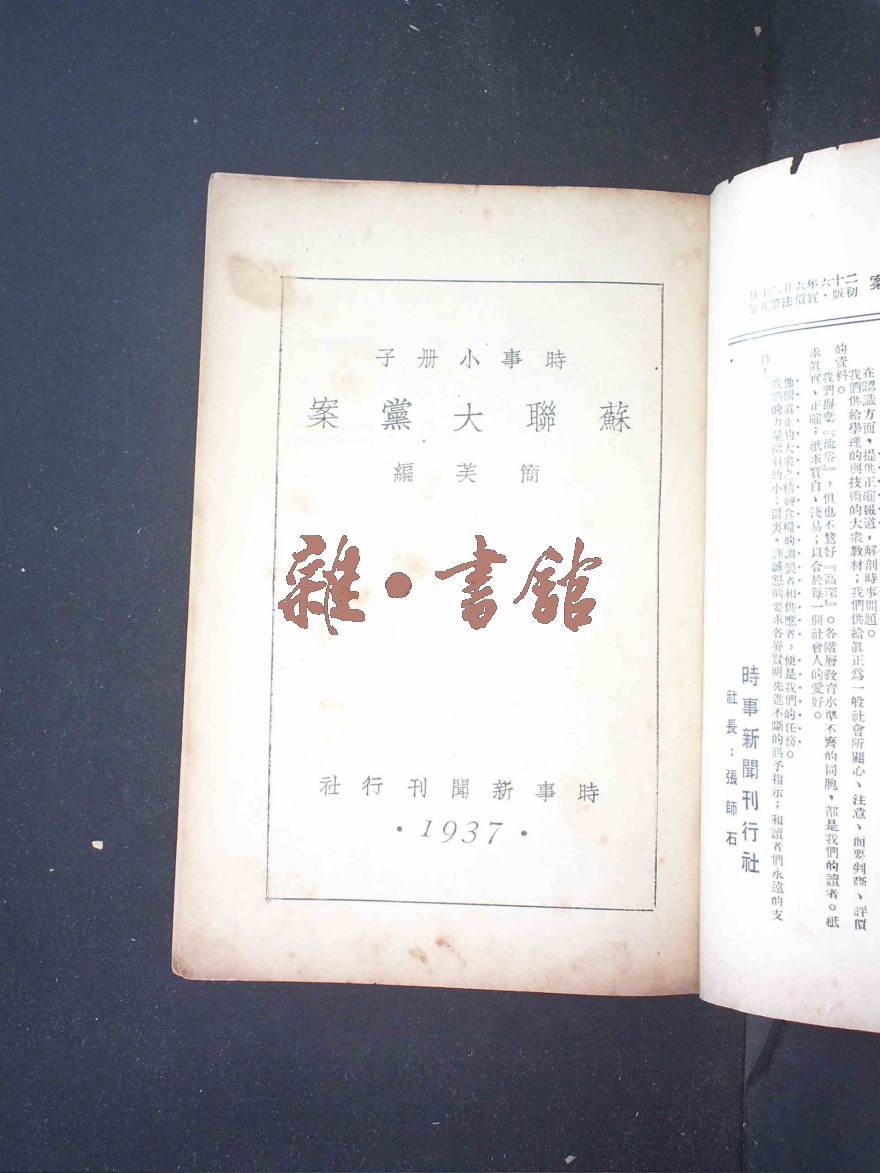 時事小册子
蘇聯大黨案
簡芙編
雜·書館
時事新聞刊行社
·1937·
案
二十六年六月二十日
初版·實價法幣五分
在認識方面，提供正確報道，解剖時事問題。
我們供給學理的與技術的大衆教材；我們供給眞正爲一般社會所關心、注意、而要判斷、評價
的資料。
我們摒棄『流俗』，但也不驚好『高深』。各階層教育水準不齊的同胞，都是我們的讀者。祇
求眞實、正確；祇求質白、淺易；以合於每一個社會人的愛好。
做個眞正的大衆之精神食糧的調製者和供應者，便是我們的任務。
我們的力量微弱幼小；還要，誠懇的要求各界賢明先進不斷的賜予指示；和讀者們永遠的支
持！
時事新聞刊行社
社長：張師石